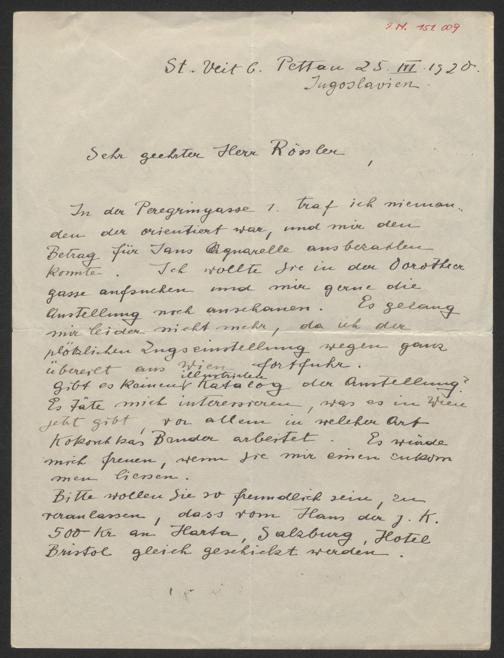 I.N. 151 009
St. Veit b. Pettau 25. III. 1920.
Jugoslavien.
Sehr geehrter Herr Rössler,
In der Peregringasse 1. traf ich nieman-
den der orientiert war, und mir den
Betrag für Jans Aquarelle ausbezahlen
konnte. Ich wollte Sie in der Dorotheer
gasse aufsuchen und mir gerne die
Austellung noch anschauen. Es gelang
mir leider nicht mehr, da ich der
plötzlichen Zugseinstellung wegen ganz
übereilt aus Wien fortfuhr.
Gibt es keinen illustrierten Katalog der Austellung?
Es täte mich interessieren, was es in Wien
jetzt gibt, vor allem in welcher Art
Kokoschkas Bruder arbeitet. Es würde
mich freuen, wenn Sie mir einen zukom
men liessen.
Bitte wollen Sie so freundlich sein, zu
veranlassen, dass vom Haus der j. K.
500 Kr an Harta, Salzburg, Hotel
Bristol gleich geschickt werden.